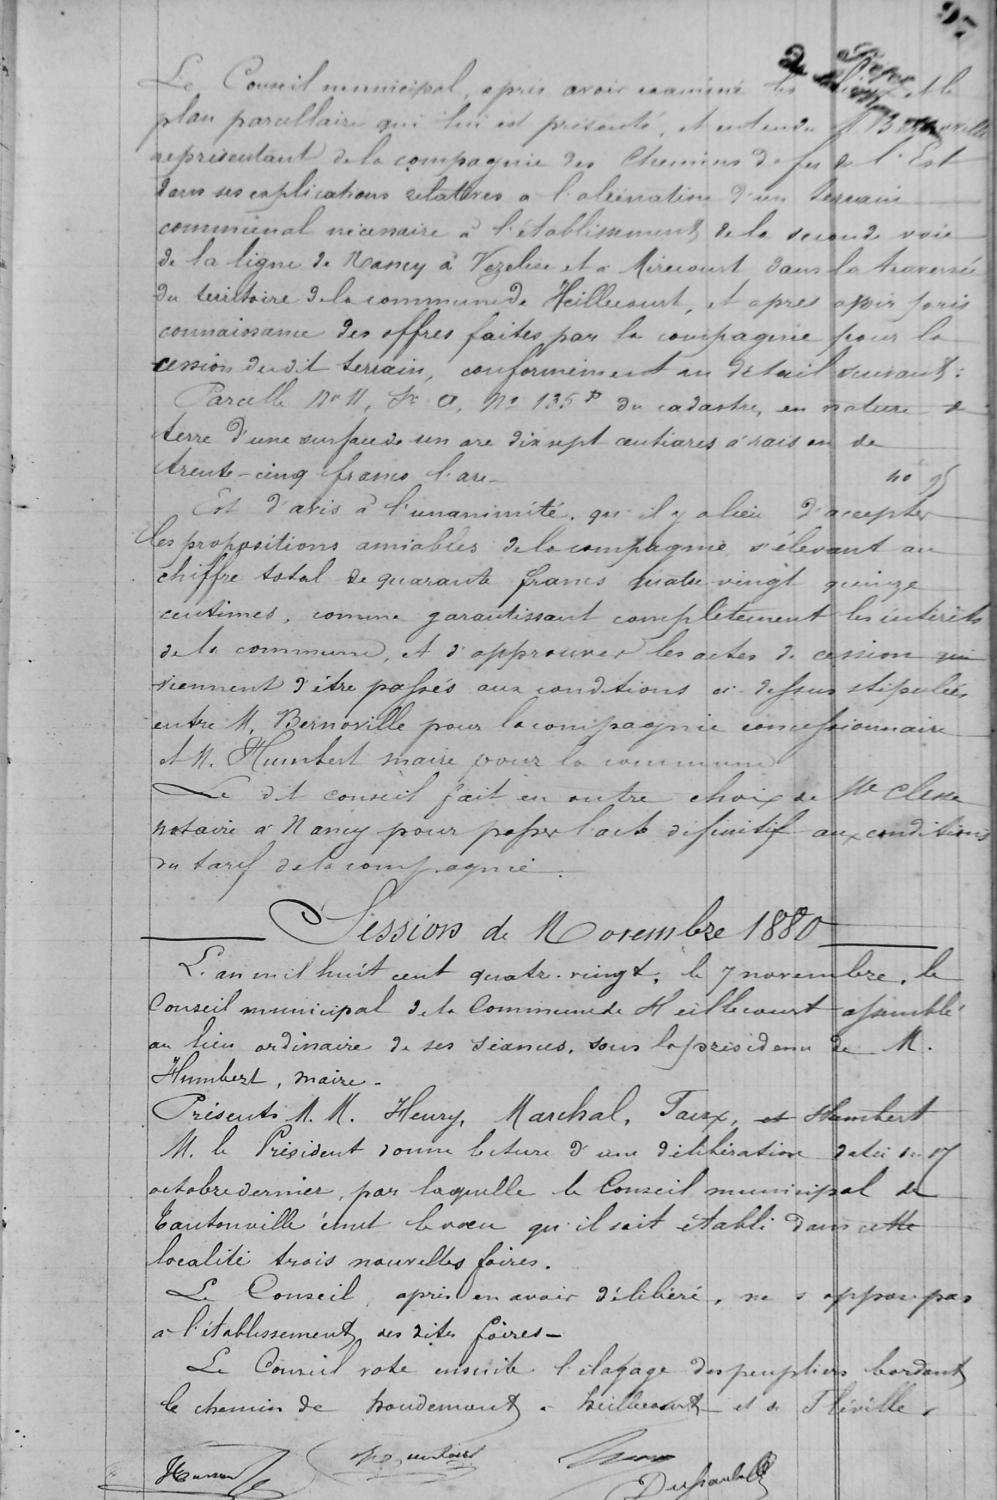 Le Conseil municipal, après avoir examiné les et le
plan parcellaire qui lui est présenté, et entendu M Bernoville
représentant de la compagnie des Chemins de fer de l'Est
dans ses explications relatives a l'aliénation d'un terrain
communal nécessaire à l'établissement de la seconde voie
de la ligne de Nancy à Vezelise et à Mirecourt dans la traversée
du territoire de la commune de Heillecourt, et après avoir pris
connaissance des offres faites par la compagnie pour la
cession dudit terrain, conformément au détail suivant :
Parcelle No 11, Son A, No 135 P du cadastre, en nature de
terre d'une surface de un are dix sept centiares à raison de
trente-cinq francs l'are - 40 95
Est d'avis à l'unanimité, qu'il y a lieu d'accepter
les propositions amiables de la compagnie s'élevant au
chiffre total de quarante francs quatre vingt quinze
centimes, comme garantissant complètement les intérêts
de la commune, et d'approuver les actes de cession qui
viennent d'être passés aux conditions ci-dessus stipulées
entre M. Bernoville pour la compagnie concessionnaire
et M. Humbert maire pour la commune
Le dit conseil fait en outre choix de Me
notaire à Nancy pour passer l'acte définitif aux conditions
du tarif de la compagnie.
Session de Novembre 1880
L'an mil huit cent quatre-vingt, le 7 novembre, le
Conseil municipal de la Commune de Heillecourt assemblé
au lieu ordinaire de ses séances, sous la présidence de M.
Humbert, maire -
Présents M. M. Henry, Marchal, et Humbert
M. le Président donne lecture d'une délibération datée du 17
octobre dernier, par laquelle le Conseil municipal de
Tantonville émet le voeu qu'il soit établi dans cette
localité trois nouvelles foires.
Le Conseil, après en avoir délibéré, ne s'oppose pas
à l'établissement des dites foires -
Le Conseil vote ensuite l'élagage des peupliers bordant
le chemin de houdemont à heillecourt et de Fléville.